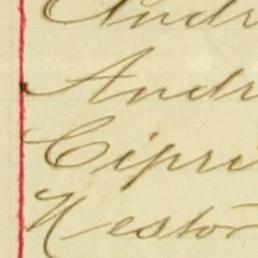 Andr
Andr
Cipri
Nestor